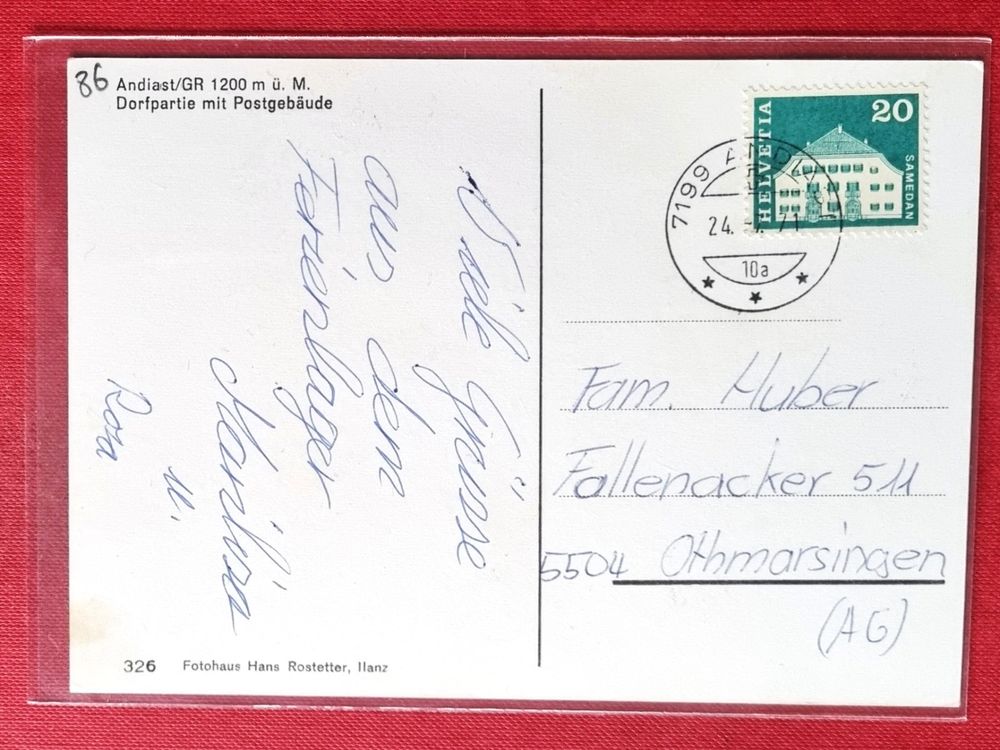 86
Andiast/GR 1200 m ü. M.
Dorfpartie mit Postgebäude
Viele Grüsse
aus dem
Ferienlager
Marilisa
u.
Rosa
326 Fotohaus Hans Rostetter, Ilanz
HELVETIA
20
SAMEDAN
7199 ANDIAST
24. 71
10a
Fam. Huber
Fallenacker 511
5504 Othmarsingen
(AG)